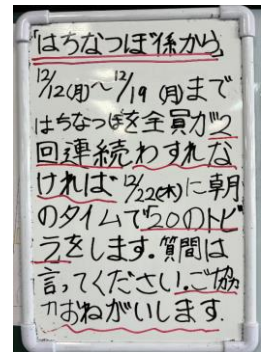 「はちなつぼ係から」
12/12(月)~12/19(月)まで
はちなつぼを全員が2
回連続わすれな
ければ12/22(木)に朝
のタイムで"20のトビ
ラをします.質問は
言ってください.ご協
力おねがいします.